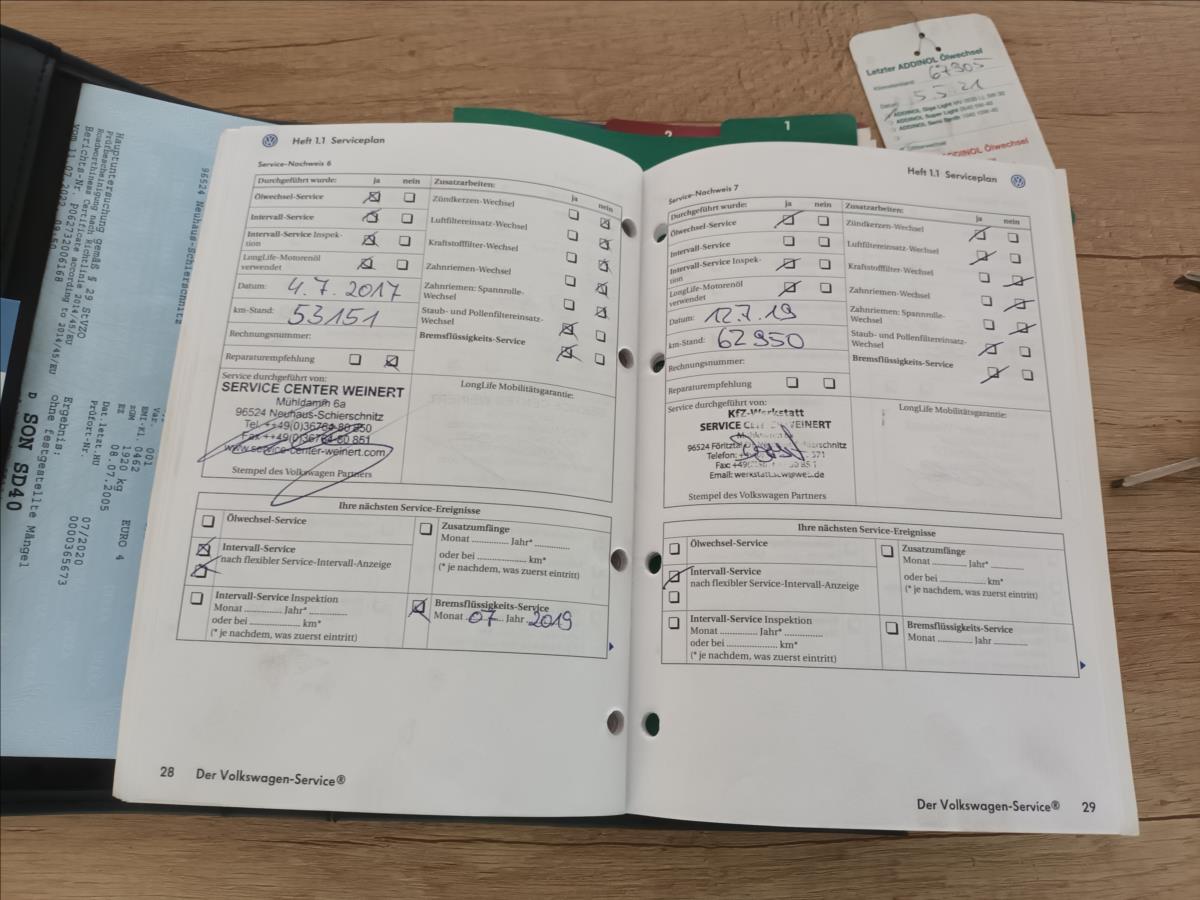 Heft 1.1 Serviceplan
Service-Nachweis 6
Durchgeführt wurde: ja nein
Ölwechsel-Service
Intervall-Service
Intervall-Service Inspek-
tion
LongLife-Motorenöl
verwendet
Datum: 4.7.2017
km-Stand: 53151
Rechnungsnummer:
Reparaturempfehlung
Zusatzarbeiten: ja nein
Zündkerzen-Wechsel
Luftfiltereinsatz-Wechsel
Kraftstofffilter-Wechsel
Zahnriemen-Wechsel
Zahnriemen: Spannrolle-
Wechsel
Staub- und Pollenfiltereinsatz-
Wechsel
Bremsflüssigkeits-Service
Service durchgeführt von:
SERVICE CENTER WEINERT
Mühldamm 6a
96524 Neuhaus-Schierschnitz
Tel. ++49(0)36764-80 850
Fax ++49(0)36764-80 851
www.service-center-weinert.com
Stempel des Volkswagen Partners
LongLife Mobilitätsgarantie:
Ihre nächsten Service-Ereignisse
Ölwechsel-Service
Intervall-Service
nach flexibler Service-Intervall-Anzeige
Intervall-Service Inspektion
Monat ............. Jahr* .............
oder bei ................. km*
(* je nachdem, was zuerst eintritt)
Zusatzumfänge
Monat ............. Jahr* .............
oder bei ................. km*
(* je nachdem, was zuerst eintritt)
Bremsflüssigkeits-Service
Monat 07 Jahr 2019
28 Der Volkswagen-Service®
Heft 1.1 Serviceplan
Service-Nachweis 7
Durchgeführt wurde: ja nein
Ölwechsel-Service
Intervall-Service
Intervall-Service Inspek-
tion
LongLife-Motorenöl
verwendet
Datum: 12.7.19
km-Stand: 62950
Rechnungsnummer:
Reparaturempfehlung
Zusatzarbeiten: ja nein
Zündkerzen-Wechsel
Luftfiltereinsatz-Wechsel
Kraftstofffilter-Wechsel
Zahnriemen-Wechsel
Zahnriemen: Spannrolle-
Wechsel
Staub- und Pollenfiltereinsatz-
Wechsel
Bremsflüssigkeits-Service
Service durchgeführt von:
KfZ-Werkstatt
SERVICE WEINERT
96524 Föritztal
Telefon:
Fax:
Email:
Stempel des Volkswagen Partners
LongLife Mobilitätsgarantie:
Ihre nächsten Service-Ereignisse
Ölwechsel-Service
Intervall-Service
nach flexibler Service-Intervall-Anzeige
Intervall-Service Inspektion
Monat ............. Jahr* .............
oder bei ................. km*
(* je nachdem, was zuerst eintritt)
Zusatzumfänge
Monat ............. Jahr* .............
oder bei ................. km*
(* je nachdem, was zuerst eintritt)
Bremsflüssigkeits-Service
Monat ............. Jahr .............
Der Volkswagen-Service® 29
2
1
Letzter ADDINOL Ölwechsel
67305
5.5.21
ADDINOL Ölwechsel
96524 Neuhaus-Schierschnitz
Hauptuntersuchung gemäß § 29 StVZO
Prüfbescheinigung nach Richtlinie 2014/45/EU
Roadworthiness Certificate according to 2014/45/EU
Berichts-Nr. P062732006168
vom 11.07.2022
001
0462
1920 kg EURO 4
EZ 08.07.2005
Dat.letzt.HU 07/2020
Prüfort-Nr. 0000365673
Ergebnis:
ohne festgestellte Mängel
D SON SD40